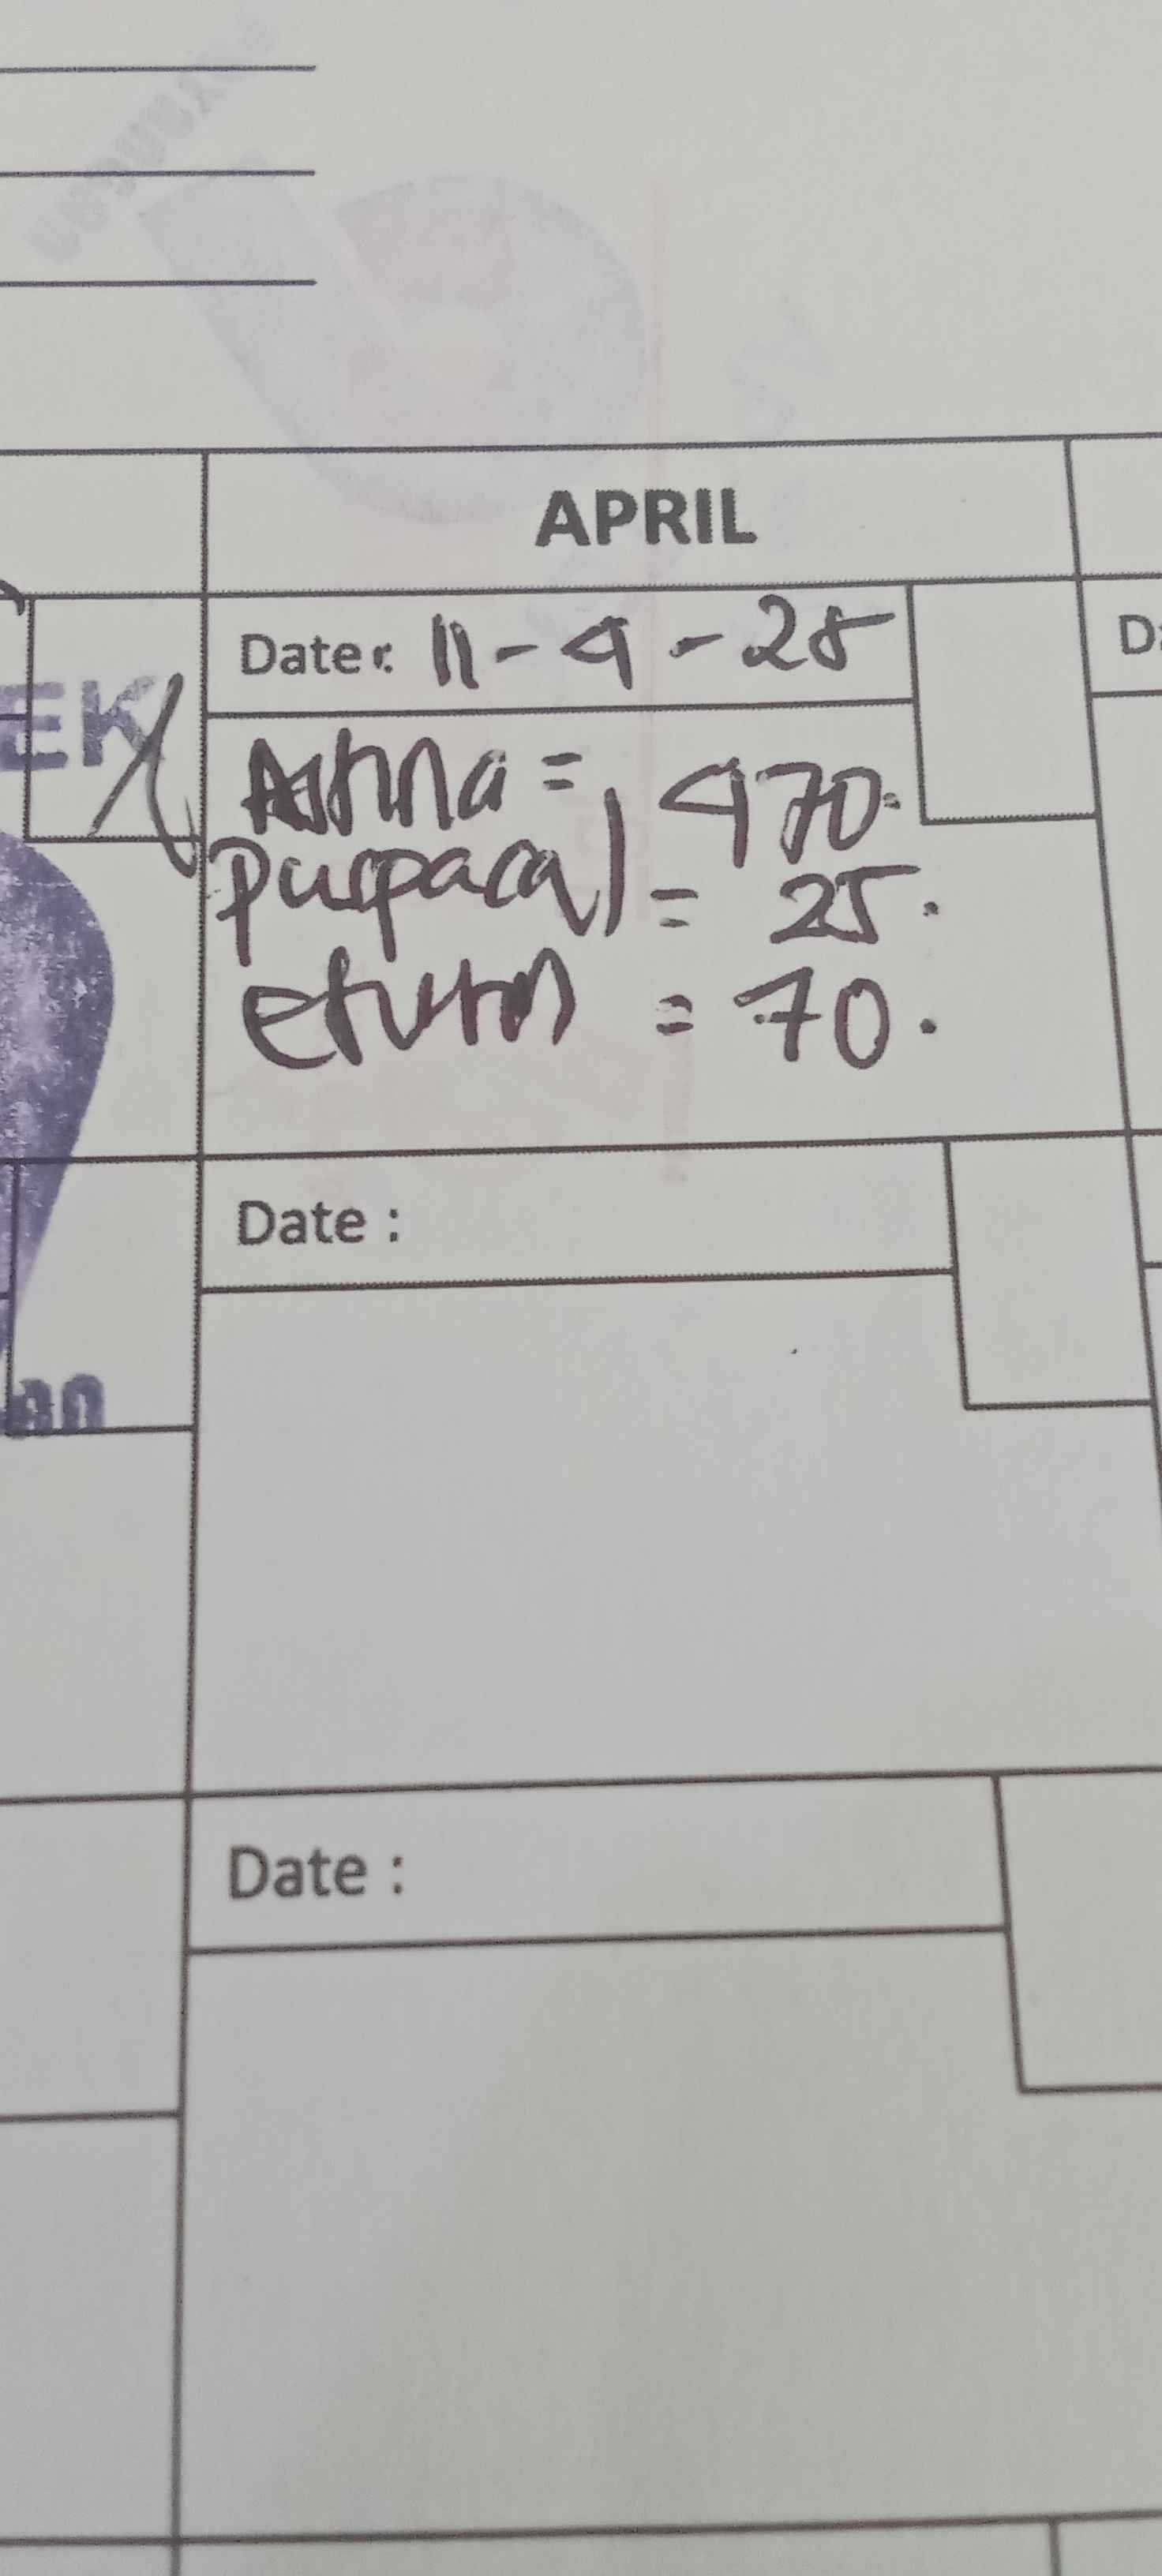 APRIL
Date : 11-4-25
D
EK
Astina = 470.
puspara) = 25.
eturn = 70.
Date :
an
Date :